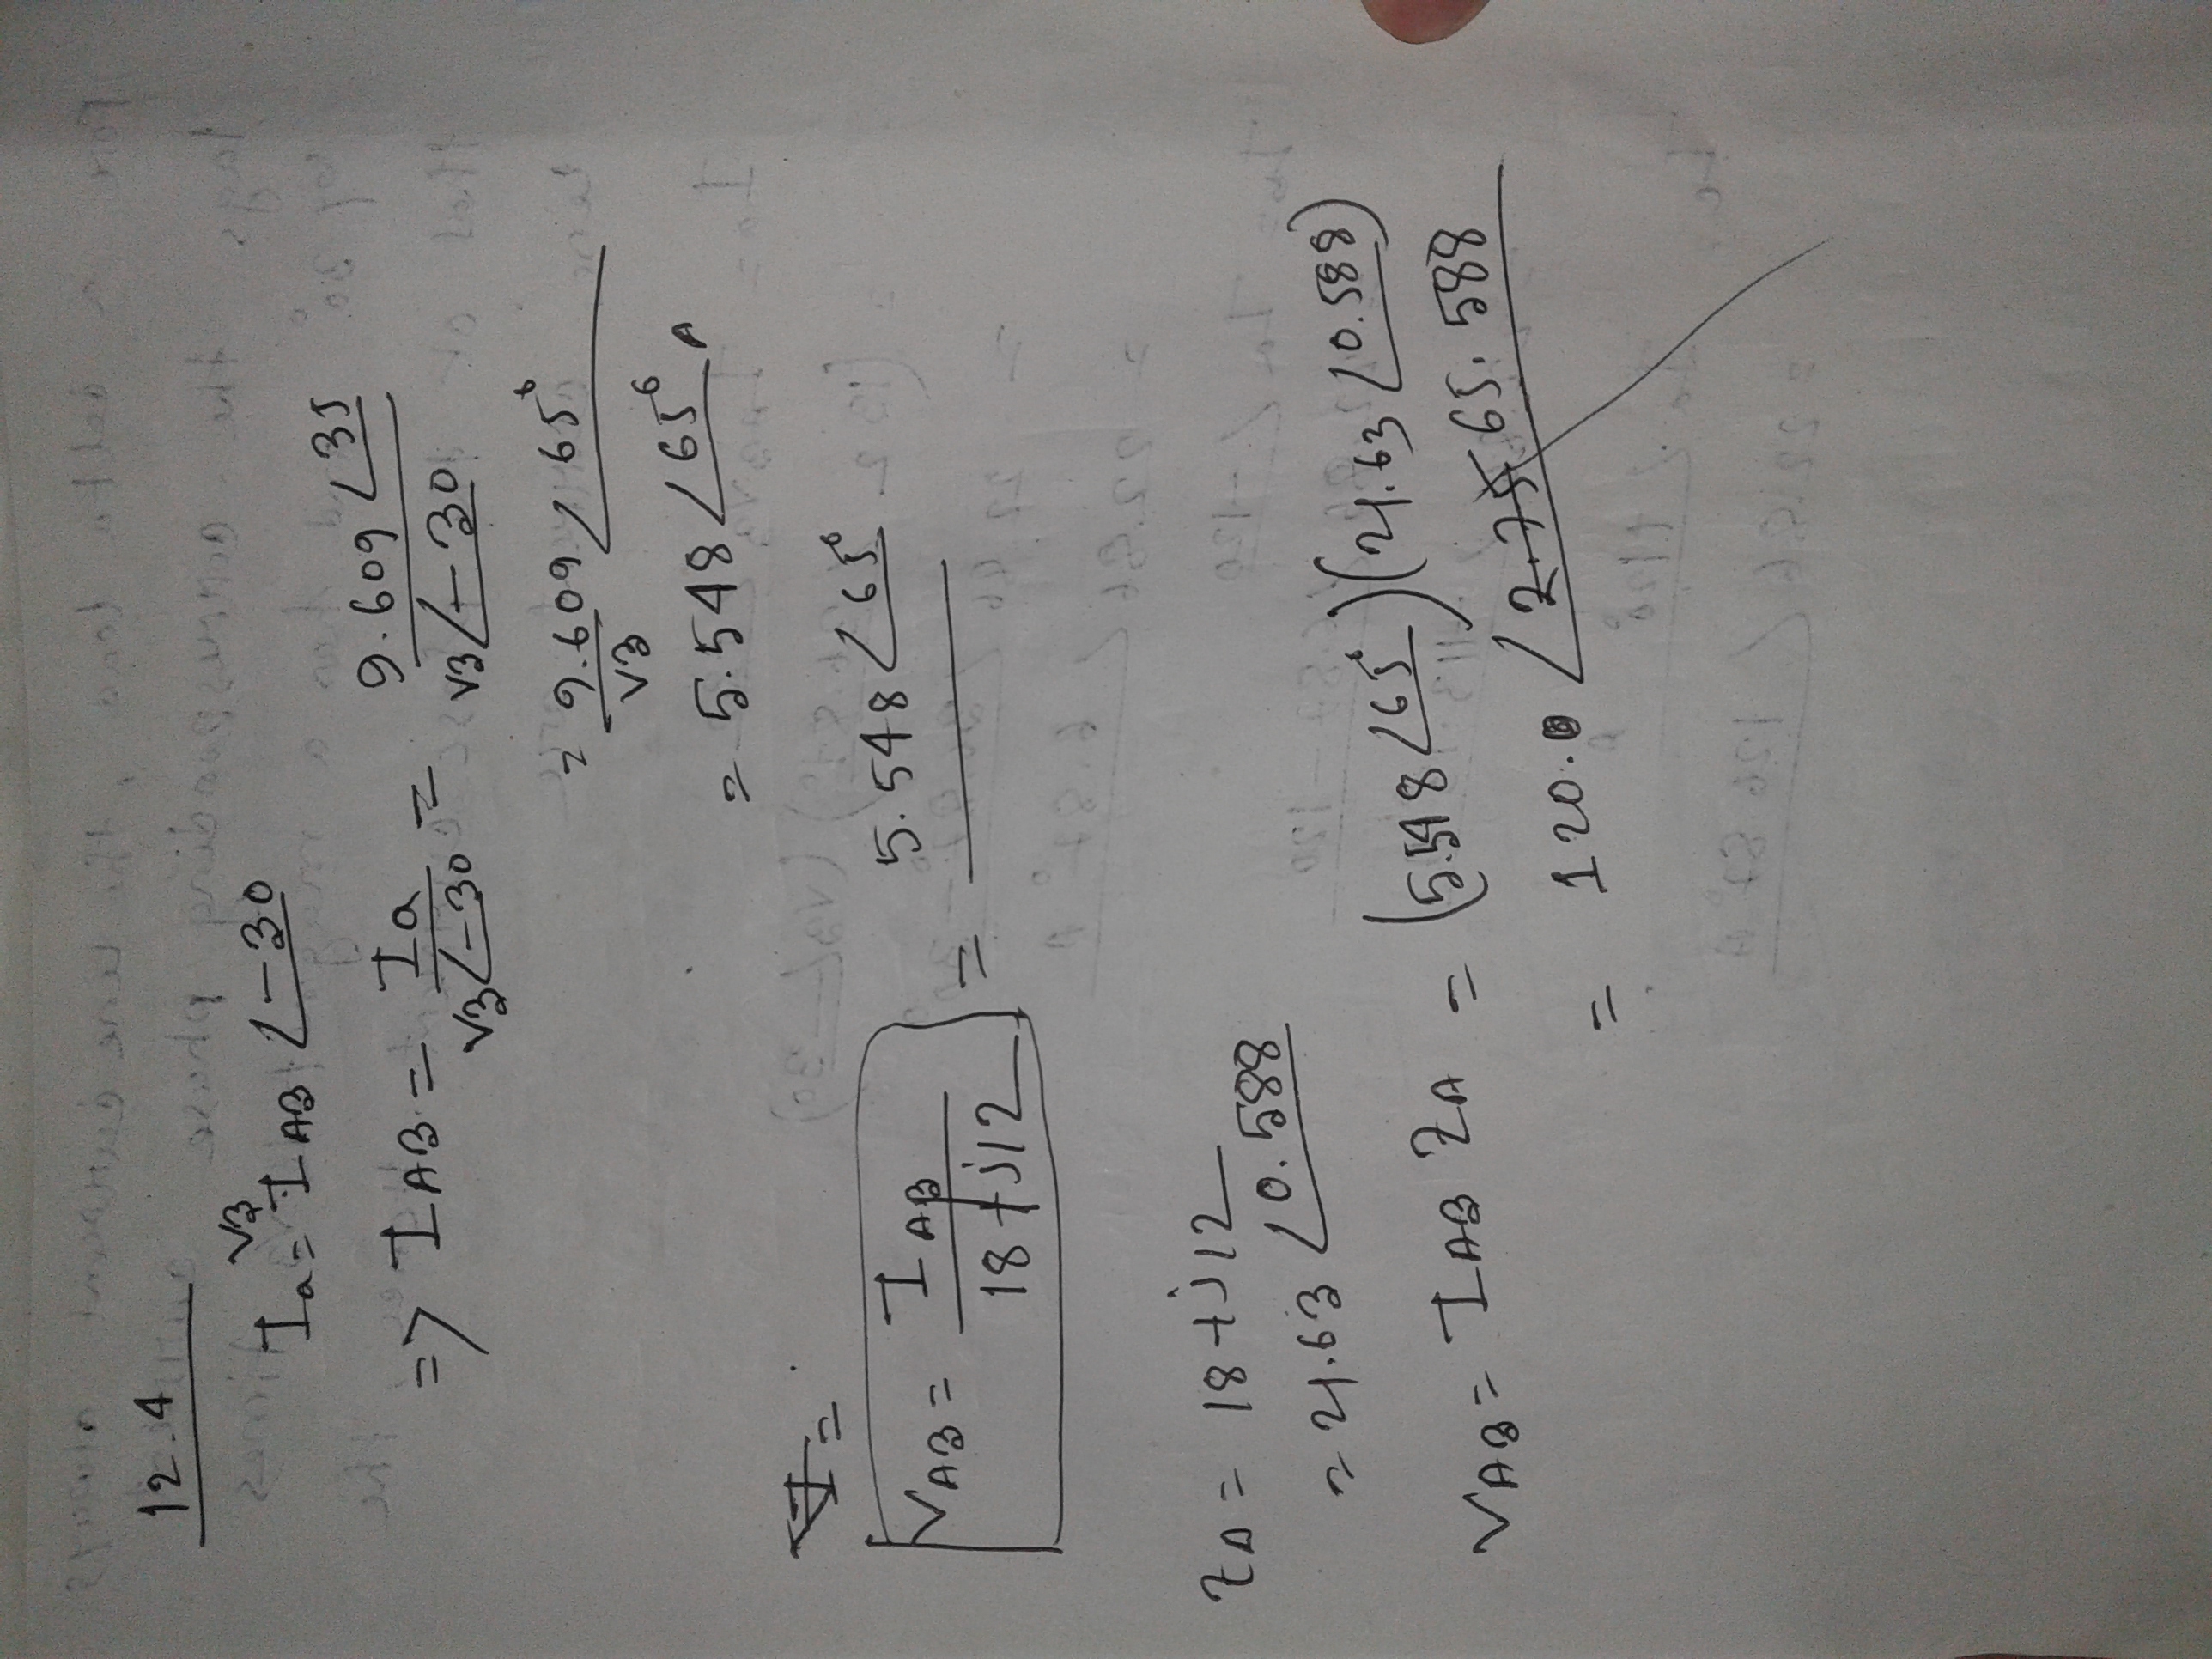 12.4
Ia = √3 IAB ∠-30
=> IAB = Ia / √3∠-30 = 9.609 ∠35 / √3∠-30
= 9.609 / √3 ∠65°
= 5.548 ∠65° A
VAB = IAB / 18+j12 = 5.548 ∠65°
ZΔ = 18+j12
= 21.63 ∠0.588
VAB = IAB ZΔ = (5.548 ∠65°)(21.63 ∠0.588)
= 120.0 ∠2.75 65.588